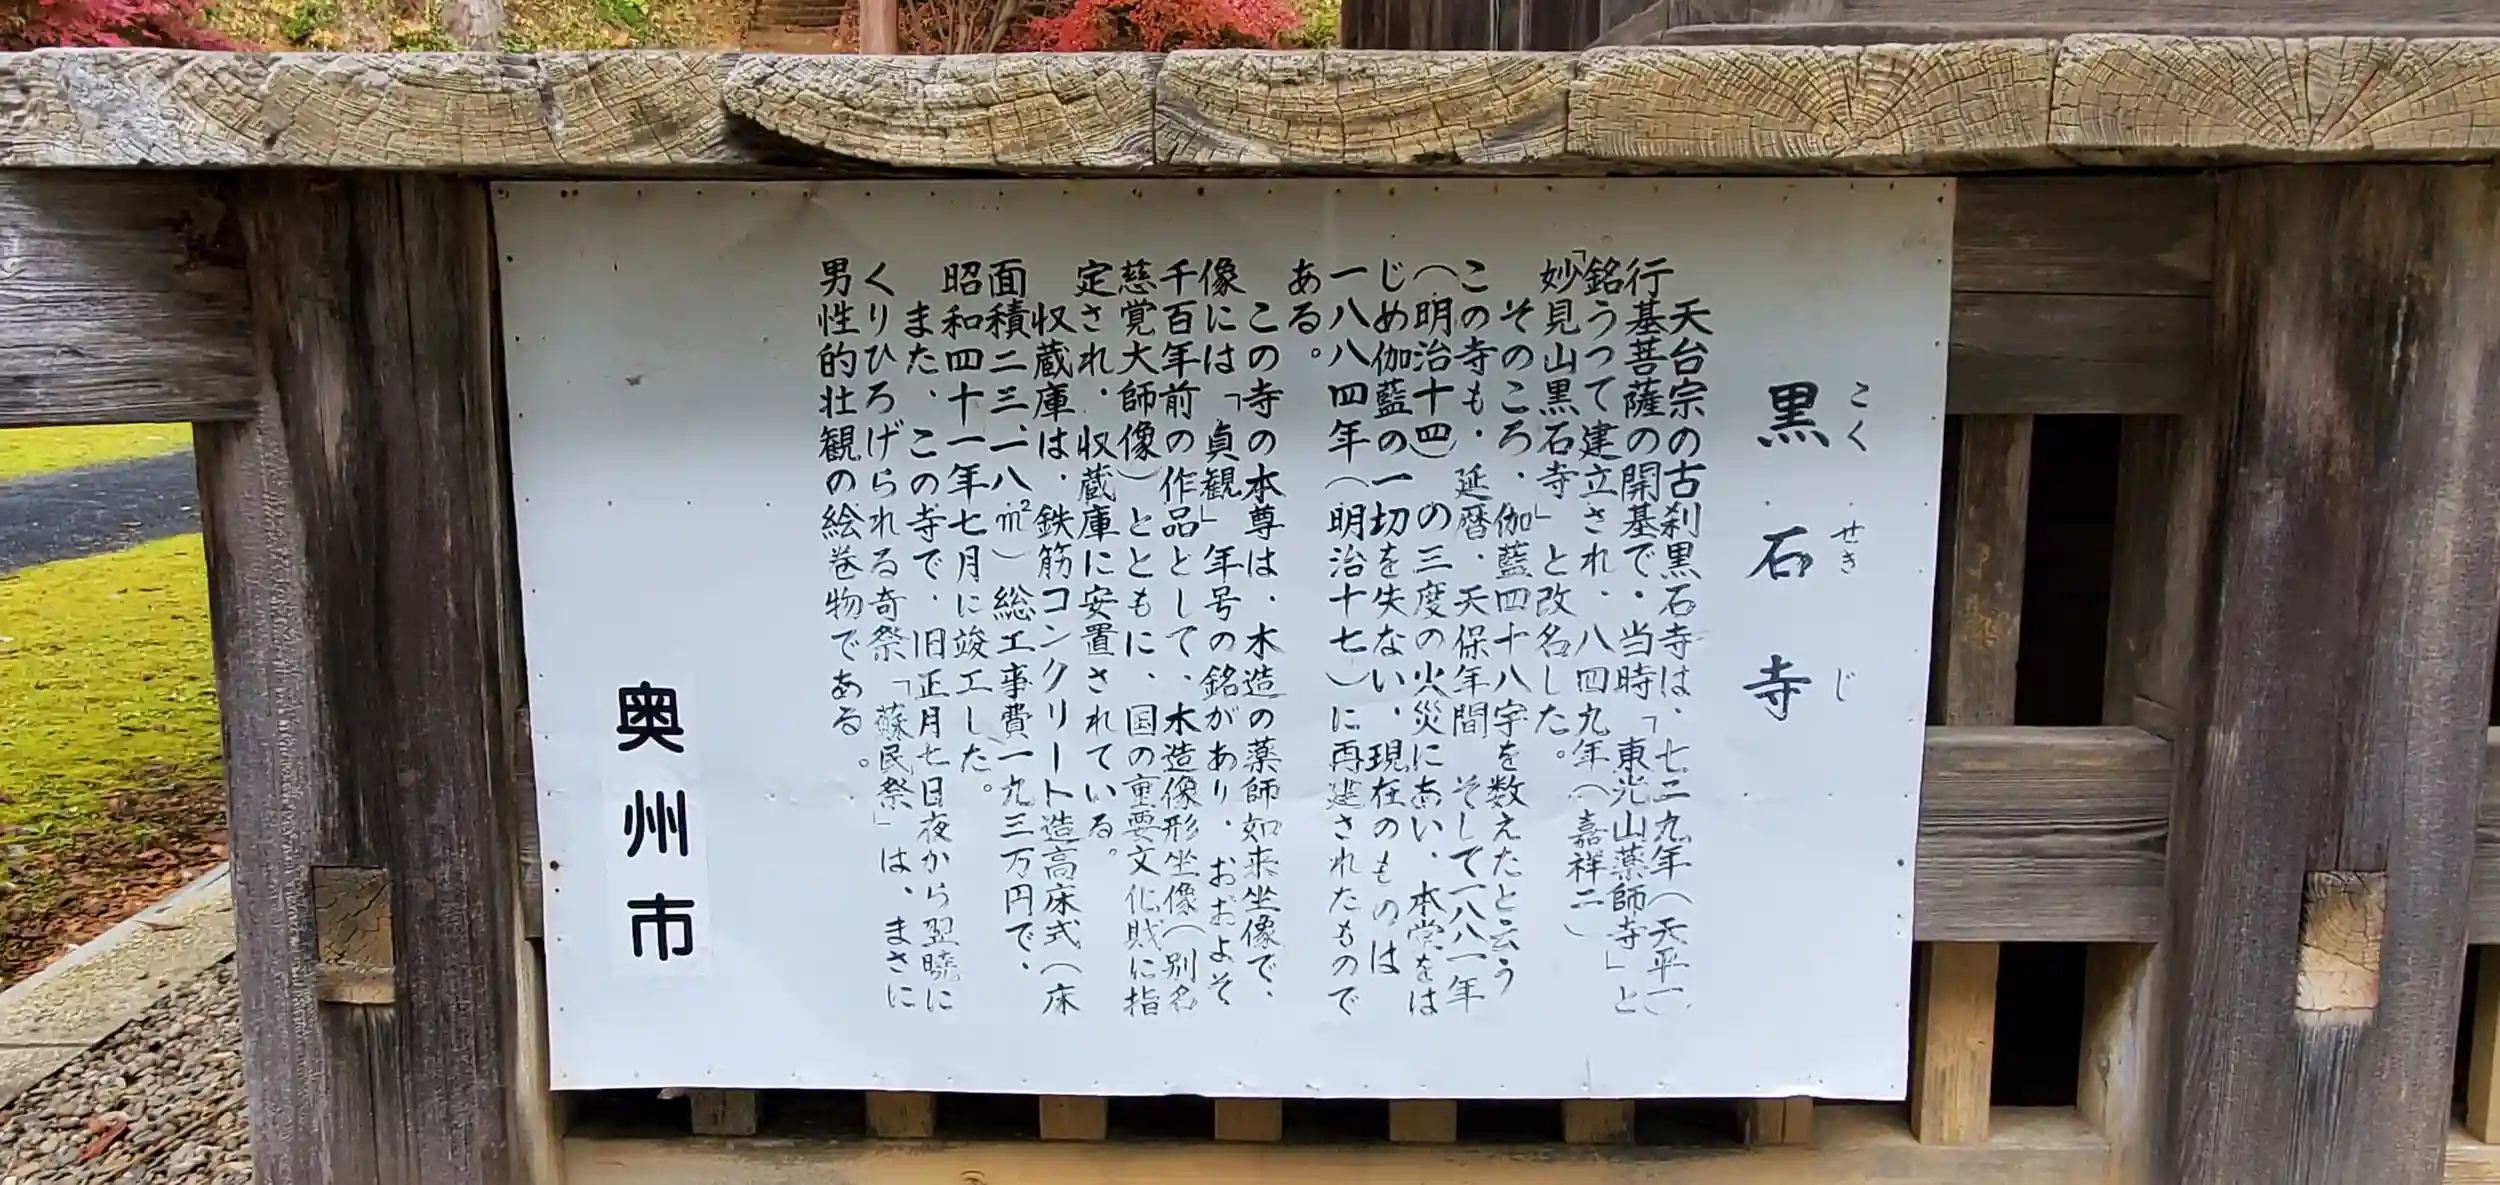 黒石寺
こくせきじ
天台宗の古刹黒石寺は、七二九年（天平一）
行基菩薩の開基で、当時「東光山薬師寺」と
銘うって建立され、八四九年（嘉祥二）
「妙見山黒石寺」と改名した。
そのころ、伽藍四十八宇を数えたと云う
この寺も、延暦、天保年間　そして一八八一年
（明治十四）の三度の火災にあい、本堂をは
じめ伽藍の一切を失ない、現在のものは
一八八四年（明治十七）に再建されたもので
ある。
この寺の本尊は、木造の薬師如来坐像で、
像には「貞観」年号の銘があり、おおよそ
千百年前の作品として、木造像形坐像（別名
慈覚大師像）とともに、国の重要文化財に指
定され、収蔵庫に安置されている。
収蔵庫は、鉄筋コンクリート造高床式（床
面積二三、一八㎡）総工事費一九三万円で、
昭和四十一年七月に竣工した。
また、この寺で、旧正月七日夜から翌暁に
くりひろげられる奇祭「蘇民祭」は、まさに
男性的壮観の絵巻物である。
奥州市